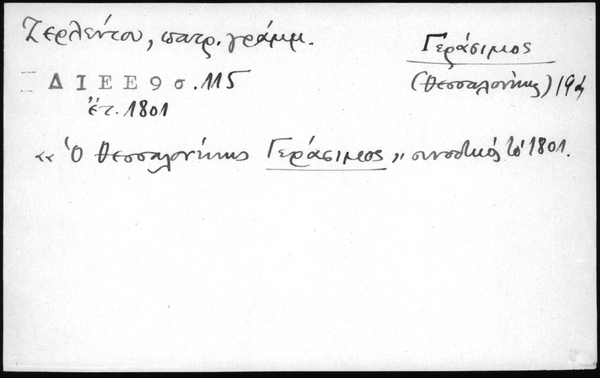 Ζερλέντου, πατρ. γράμμ.
Γεράσιμος
(Θεσσαλονίκης) 19ος
ΔΙΕΕ 9 σ. 115
ἔτ. 1801
«Ὁ Θεσσαλονίκης Γεράσιμος» συνοδικὸς τῷ 1801.